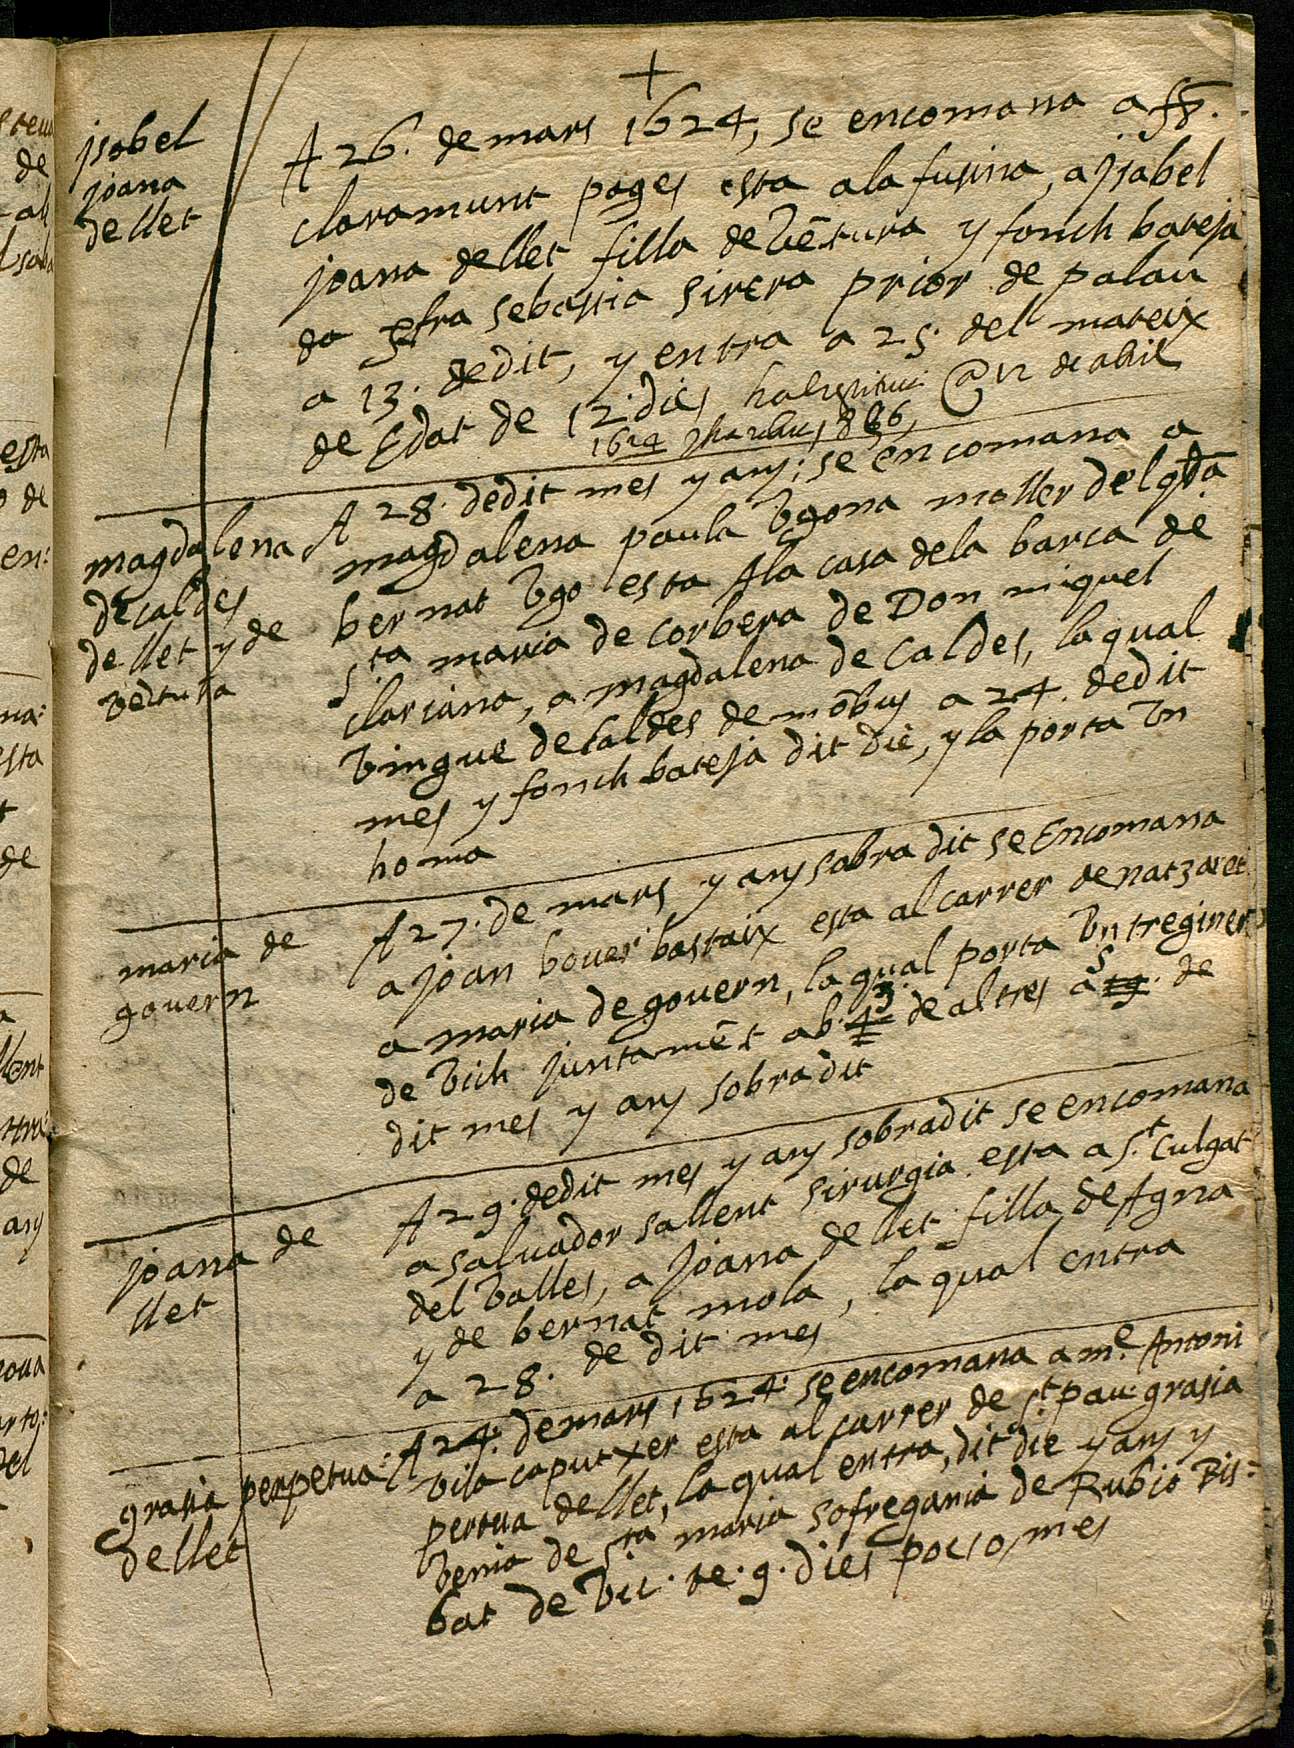 +
jsabel
joana
de llet
A 26. de mars 1624, se encomana a
claramunt pages esta a la fusina, a jsabel
joana de llet filla de Vētura y fonch bateja
da p fra sebastia sirera prior de palau
a 13. de dit, y entra a 25. del mateix
de Edat de 12. dies @ 12 de abril
1624
magdalena
de caldes
de llet y de
ventura
A 28. de dit mes y any; se encomana a
magdalena paula Vgona moller del qd̄a
bernat Vgo esta A la casa de la barca de
sta maria de corbera de Don miquel
clariana, a magdalena de Caldes, la qual
Vingue de Caldes de mōbuy a 24. de dit
mes y fonch bateja dit die, y la porta Vn
homa
maria de
govern
A 27. de mars y any sobra dit se Encomana
a joan bover bastaix esta al carrer de natzaret
a maria de govern, la qual porta Vn treginer
de Vich juntamēt ab. 3. de altres a 5 de
dit mes y any sobradit
joana de
llet
A 29. de dit mes y any sobradit se encomana
a salvador sallent sirurgia esta a st. Culgat
del Valles, a joana de llet filla de Agna
y de bernat mola, la qual entra
a 28. de dit mes
grasia perpetua
de llet
A 24. de mars 1624. se encomana a me. Antoni
Vila caputxer esta al carrer de st. pau grasia
pertua de llet, la qual entra, dit die y any y
Venia de sta maria sofregania de Rubio Bis=
bat de Vic. te. 9. dies poc so, mes